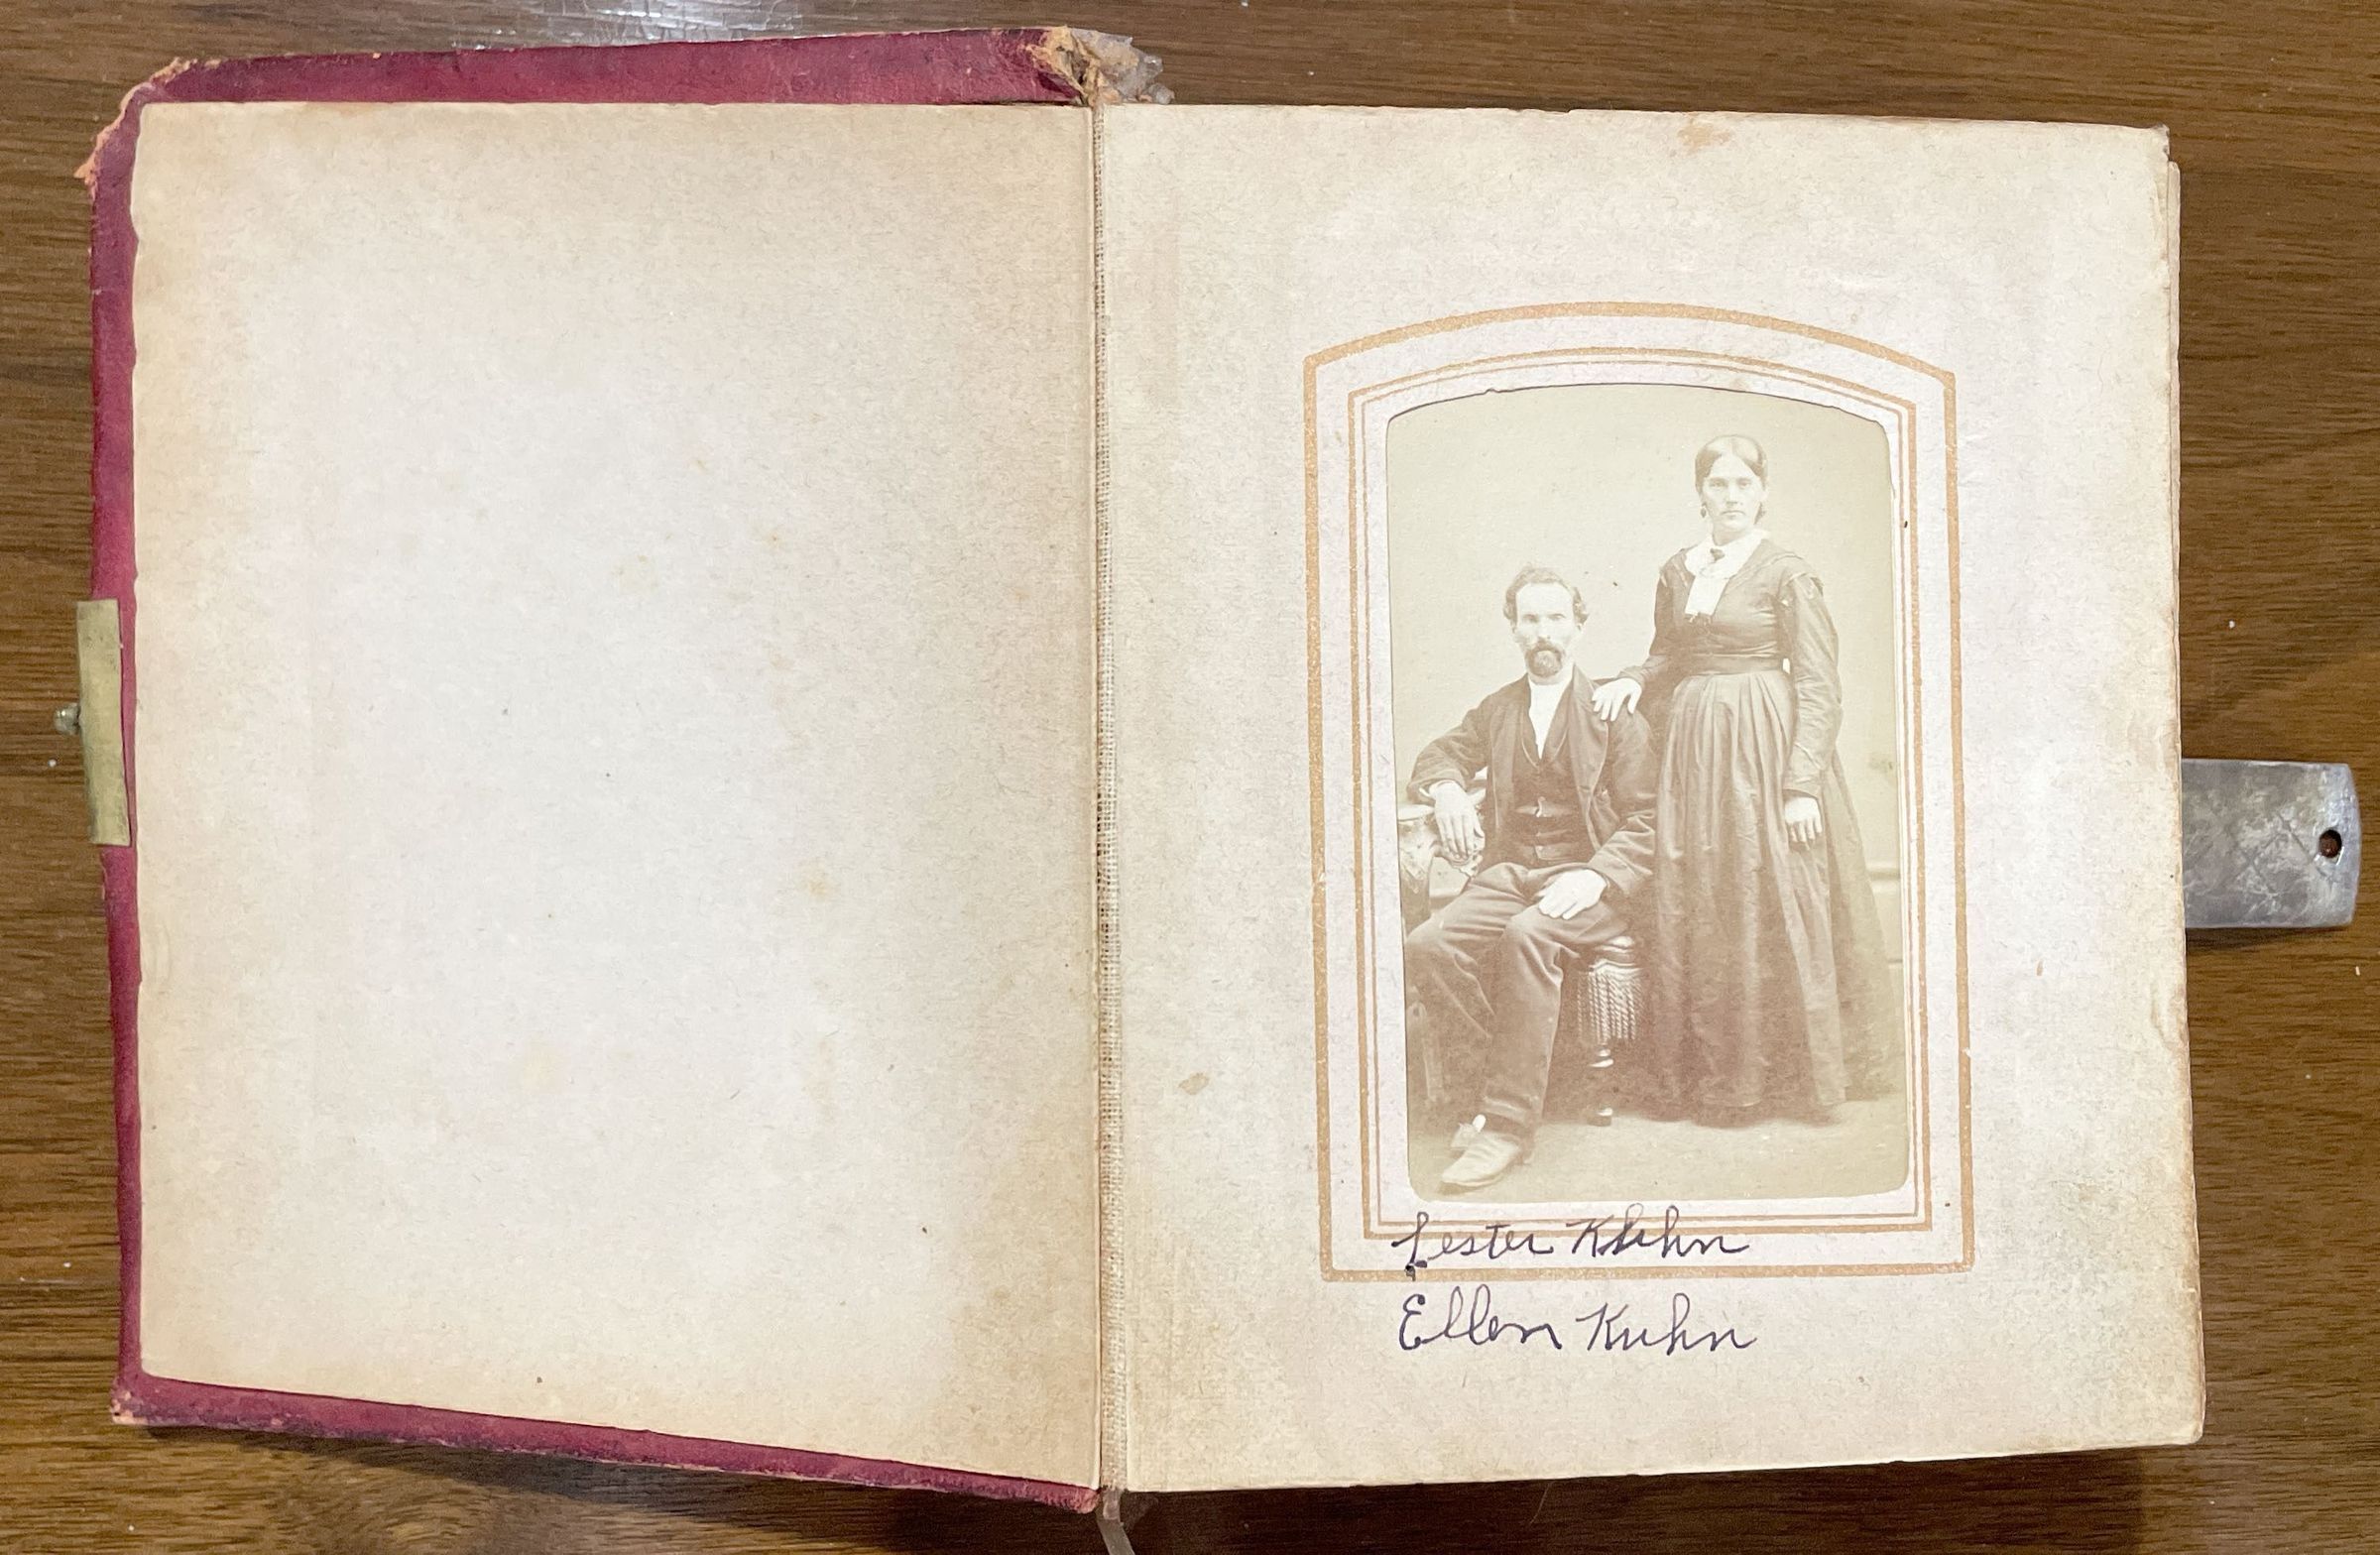 Lester Kuhn
Ellen Kuhn